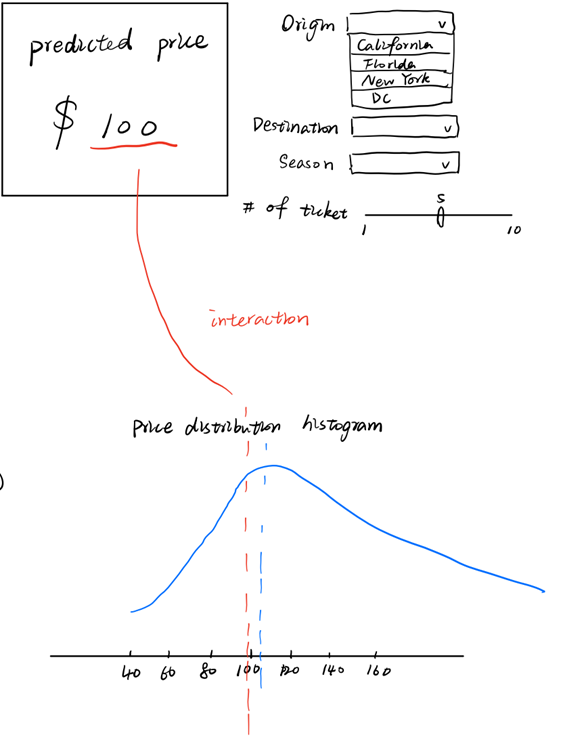 predicted price
$ 100
Origin
California
Florida
New York
DC
Destination
Season
# of ticket
5
1 10
interaction
Price distribution histogram
40 60 80 100 120 140 160